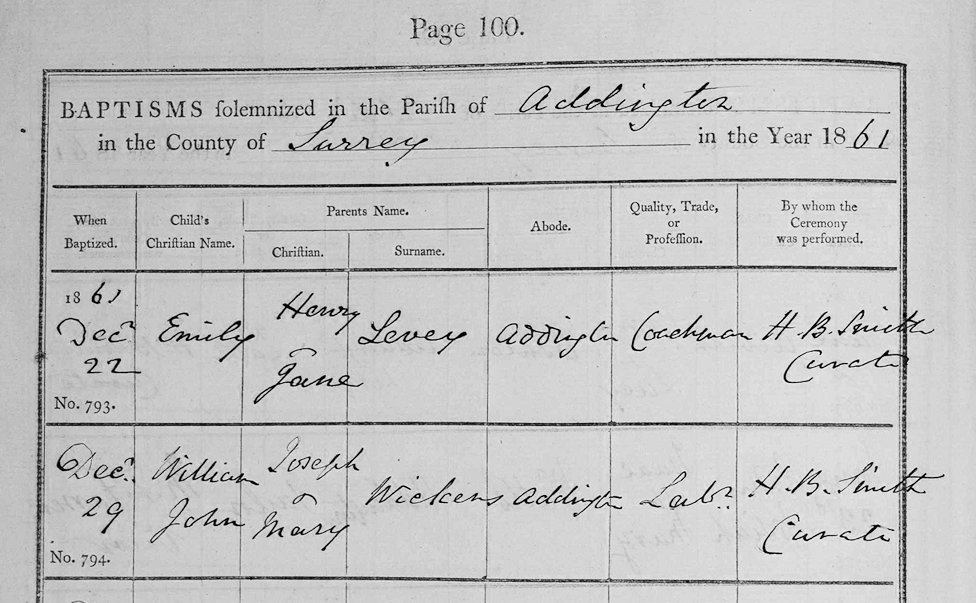 Page 100.
BAPTISMS ſolemnized in the Pariſh of Addington
in the County of Surrey in the Year 1861
When Baptized.
Child's Chriſtian Name.
Parents Name.
Chriſtian.
Surname.
Abode.
Quality, Trade, or Profeſſion.
By whom the Ceremony was performed.
1861
Decr 22
No. 793.
Emily
Henry & Jane
Levey
Addington
Coachman
H. B. Smith Curate
Decr 29
No. 794.
William John
Joseph & Mary
Wickens
Addington
Labr
H. B. Smith Curate